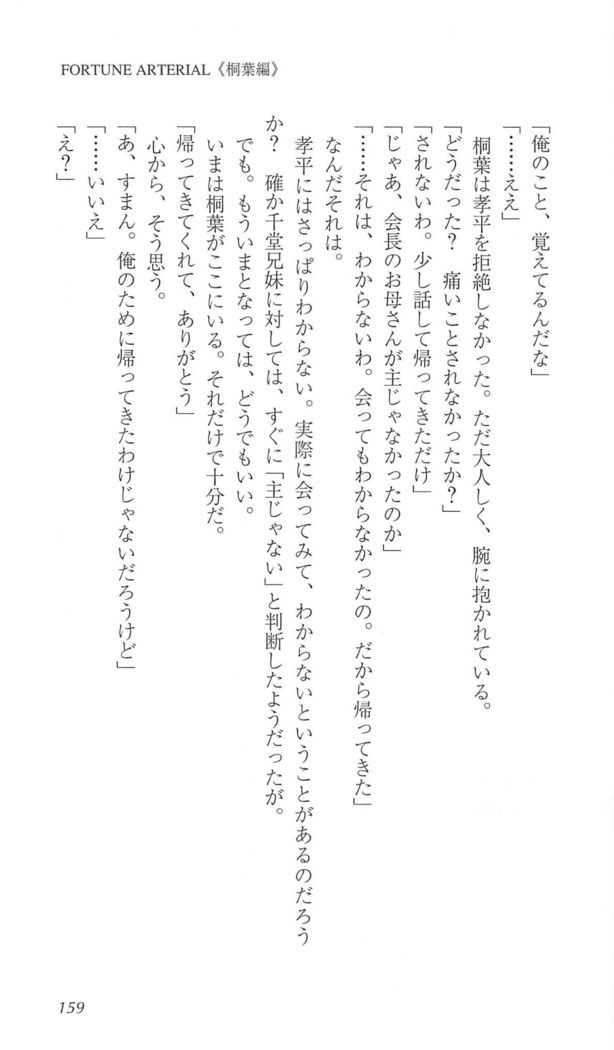 FORTUNE ARTERIAL《桐葉編》
「俺のこと、覚えてるんだな」
「……ええ」
桐葉は孝平を拒絶しなかった。ただ大人しく、腕に抱かれている。
「どうだった？　痛いことされなかったか？」
「されないわ。少し話して帰ってきただけ」
「じゃあ、会長のお母さんが主じゃなかったのか」
「……それは、わからないわ。会ってもわからなかったの。だから帰ってきた」
なんだそれは。
孝平にはさっぱりわからない。実際に会ってみて、わからないということがあるのだろう
か？　確か千堂兄妹に対しては、すぐに「主じゃない」と判断したようだったが。
でも。もういまとなっては、どうでもいい。
いまは桐葉がここにいる。それだけで十分だ。
「帰ってきてくれて、ありがとう」
心から、そう思う。
「あ、すまん。俺のために帰ってきたわけじゃないだろうけど」
「……いいえ」
「え？」
159